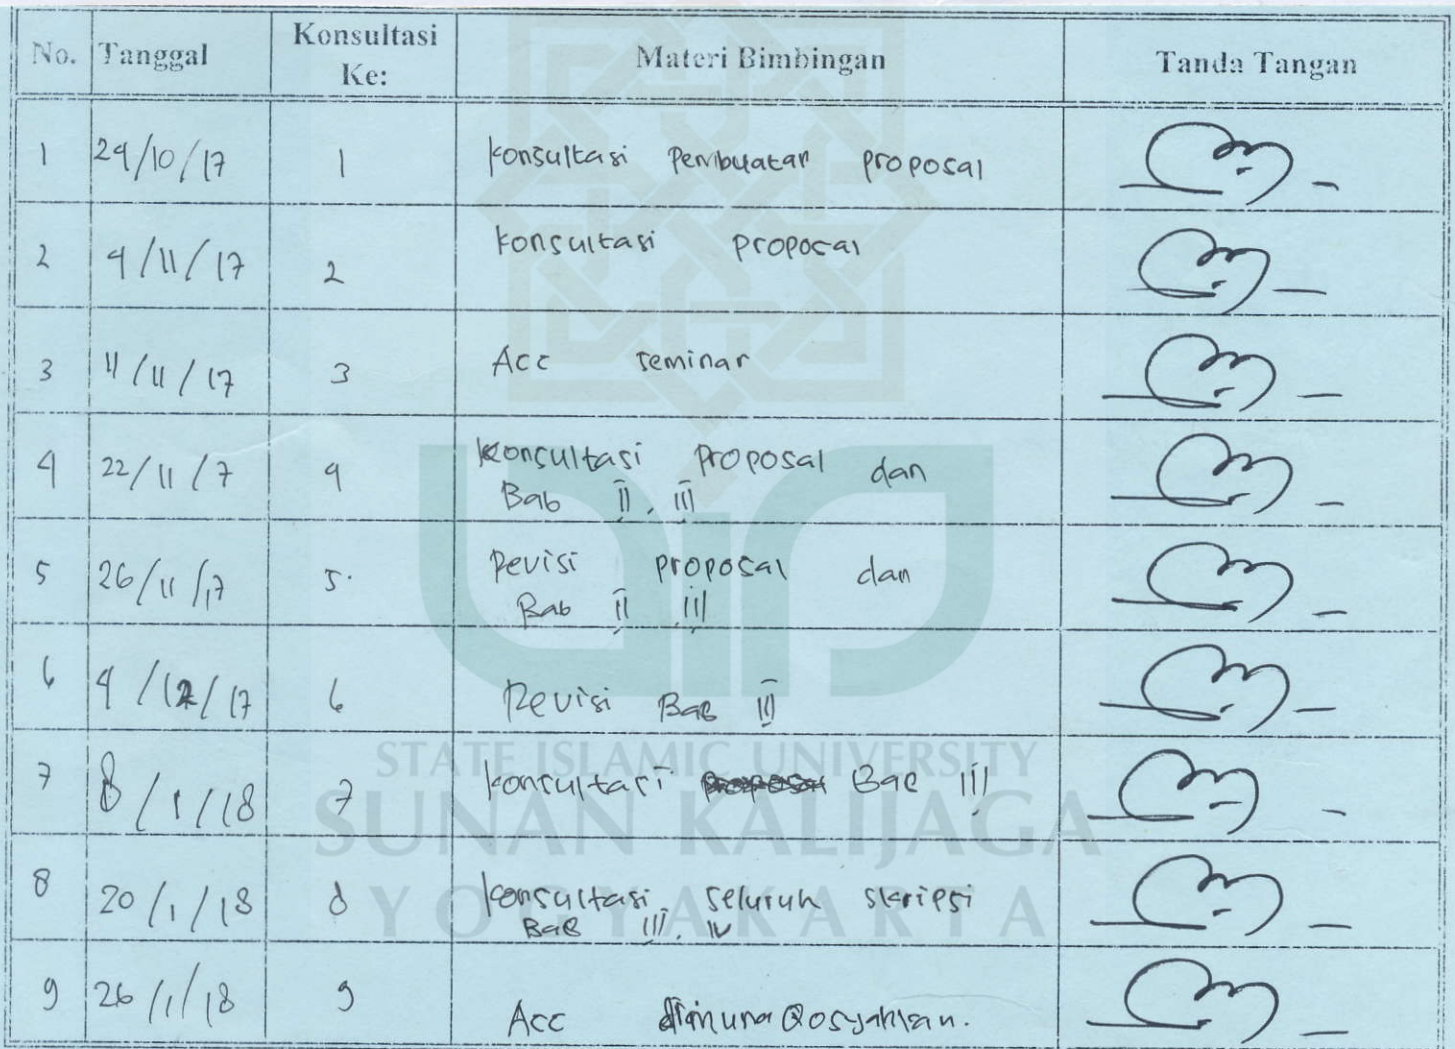 No. Tanggal Konsultasi Ke: Materi Bimbingan Tanda Tangan
1 29/10/17 1 Konsultasi Pembuatan proposal
2 4/11/17 2 Konsultasi proposal
3 11/11/17 3 Acc seminar
4 22/11/7 4 Konsultasi Proposal dan
Bab II, III
5 26/11/17 5. Revisi proposal dan
Bab II III
6 4/12/17 6 Revisi Bab III
7 8/1/18 7 Konsultasi Bab III
8 20/1/18 8 Konsultasi seluruh skripsi
Bab III, IV
9 26/1/18 9 Acc dimunaQosyahkan.
STATE ISLAMIC UNIVERSITY
SUNAN KALIJAGA
YOGYAKARTA